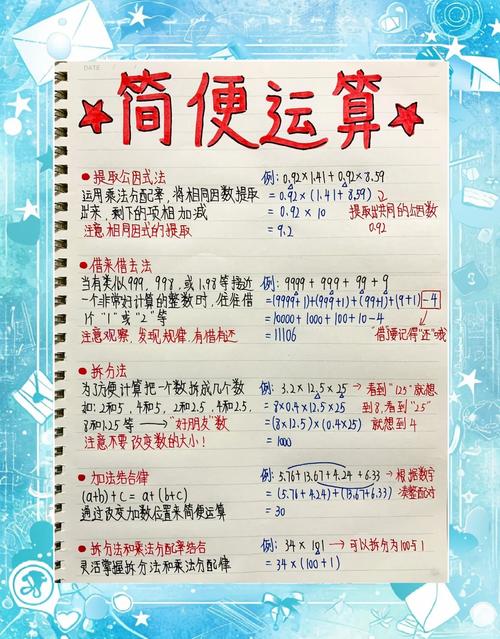 DATE
简便运算
提取公因式法
运用乘法分配率,将相同因数提取
出来,剩下的项相加减
注意相同因式的提取
例: 0.92×1.41+0.92×8.59
=0.92×(1.41+8.59)
=0.92×10
=9.2
提取出共同的公因数
0.92
借来借去法
当有类似999, 998, 或1.98等接近
一个非常好计算的整数时,往往借
个"1"或"2"等
注意观察,发现规律,有借有还
例: 9999+999+99+9
=(9999+1)+(999+1)+(99+1)+(9+1)-4
=10000+1000+100+10-4
=11106
"借"了要记得"还"哦
拆分法
为了方便计算把一个数拆成几个数
如:2和5, 4和5, 2和2.5, 4和2.5,
8和1.25等→"好朋友"数
注意不要改变数的大小!
例: 3.2×12.5×25
=8×0.4×12.5×25
=(8×12.5)×(0.4×25)
=1000
→看到"125"就想
到8,看到"25"
就想到4
加法结合律
(a+b)+c=a+(b+c)
通过改变加数位置来简便运算
例: 5.76+13.67+4.24+6.33
=(5.76+4.24)+(13.67+6.33)
=30
→根据数字
凑整配对
拆分法和乘法分配率结合
灵活掌握拆分法和乘法分配律
例: 34×101→可以拆分为100与1
=34×(100+1)